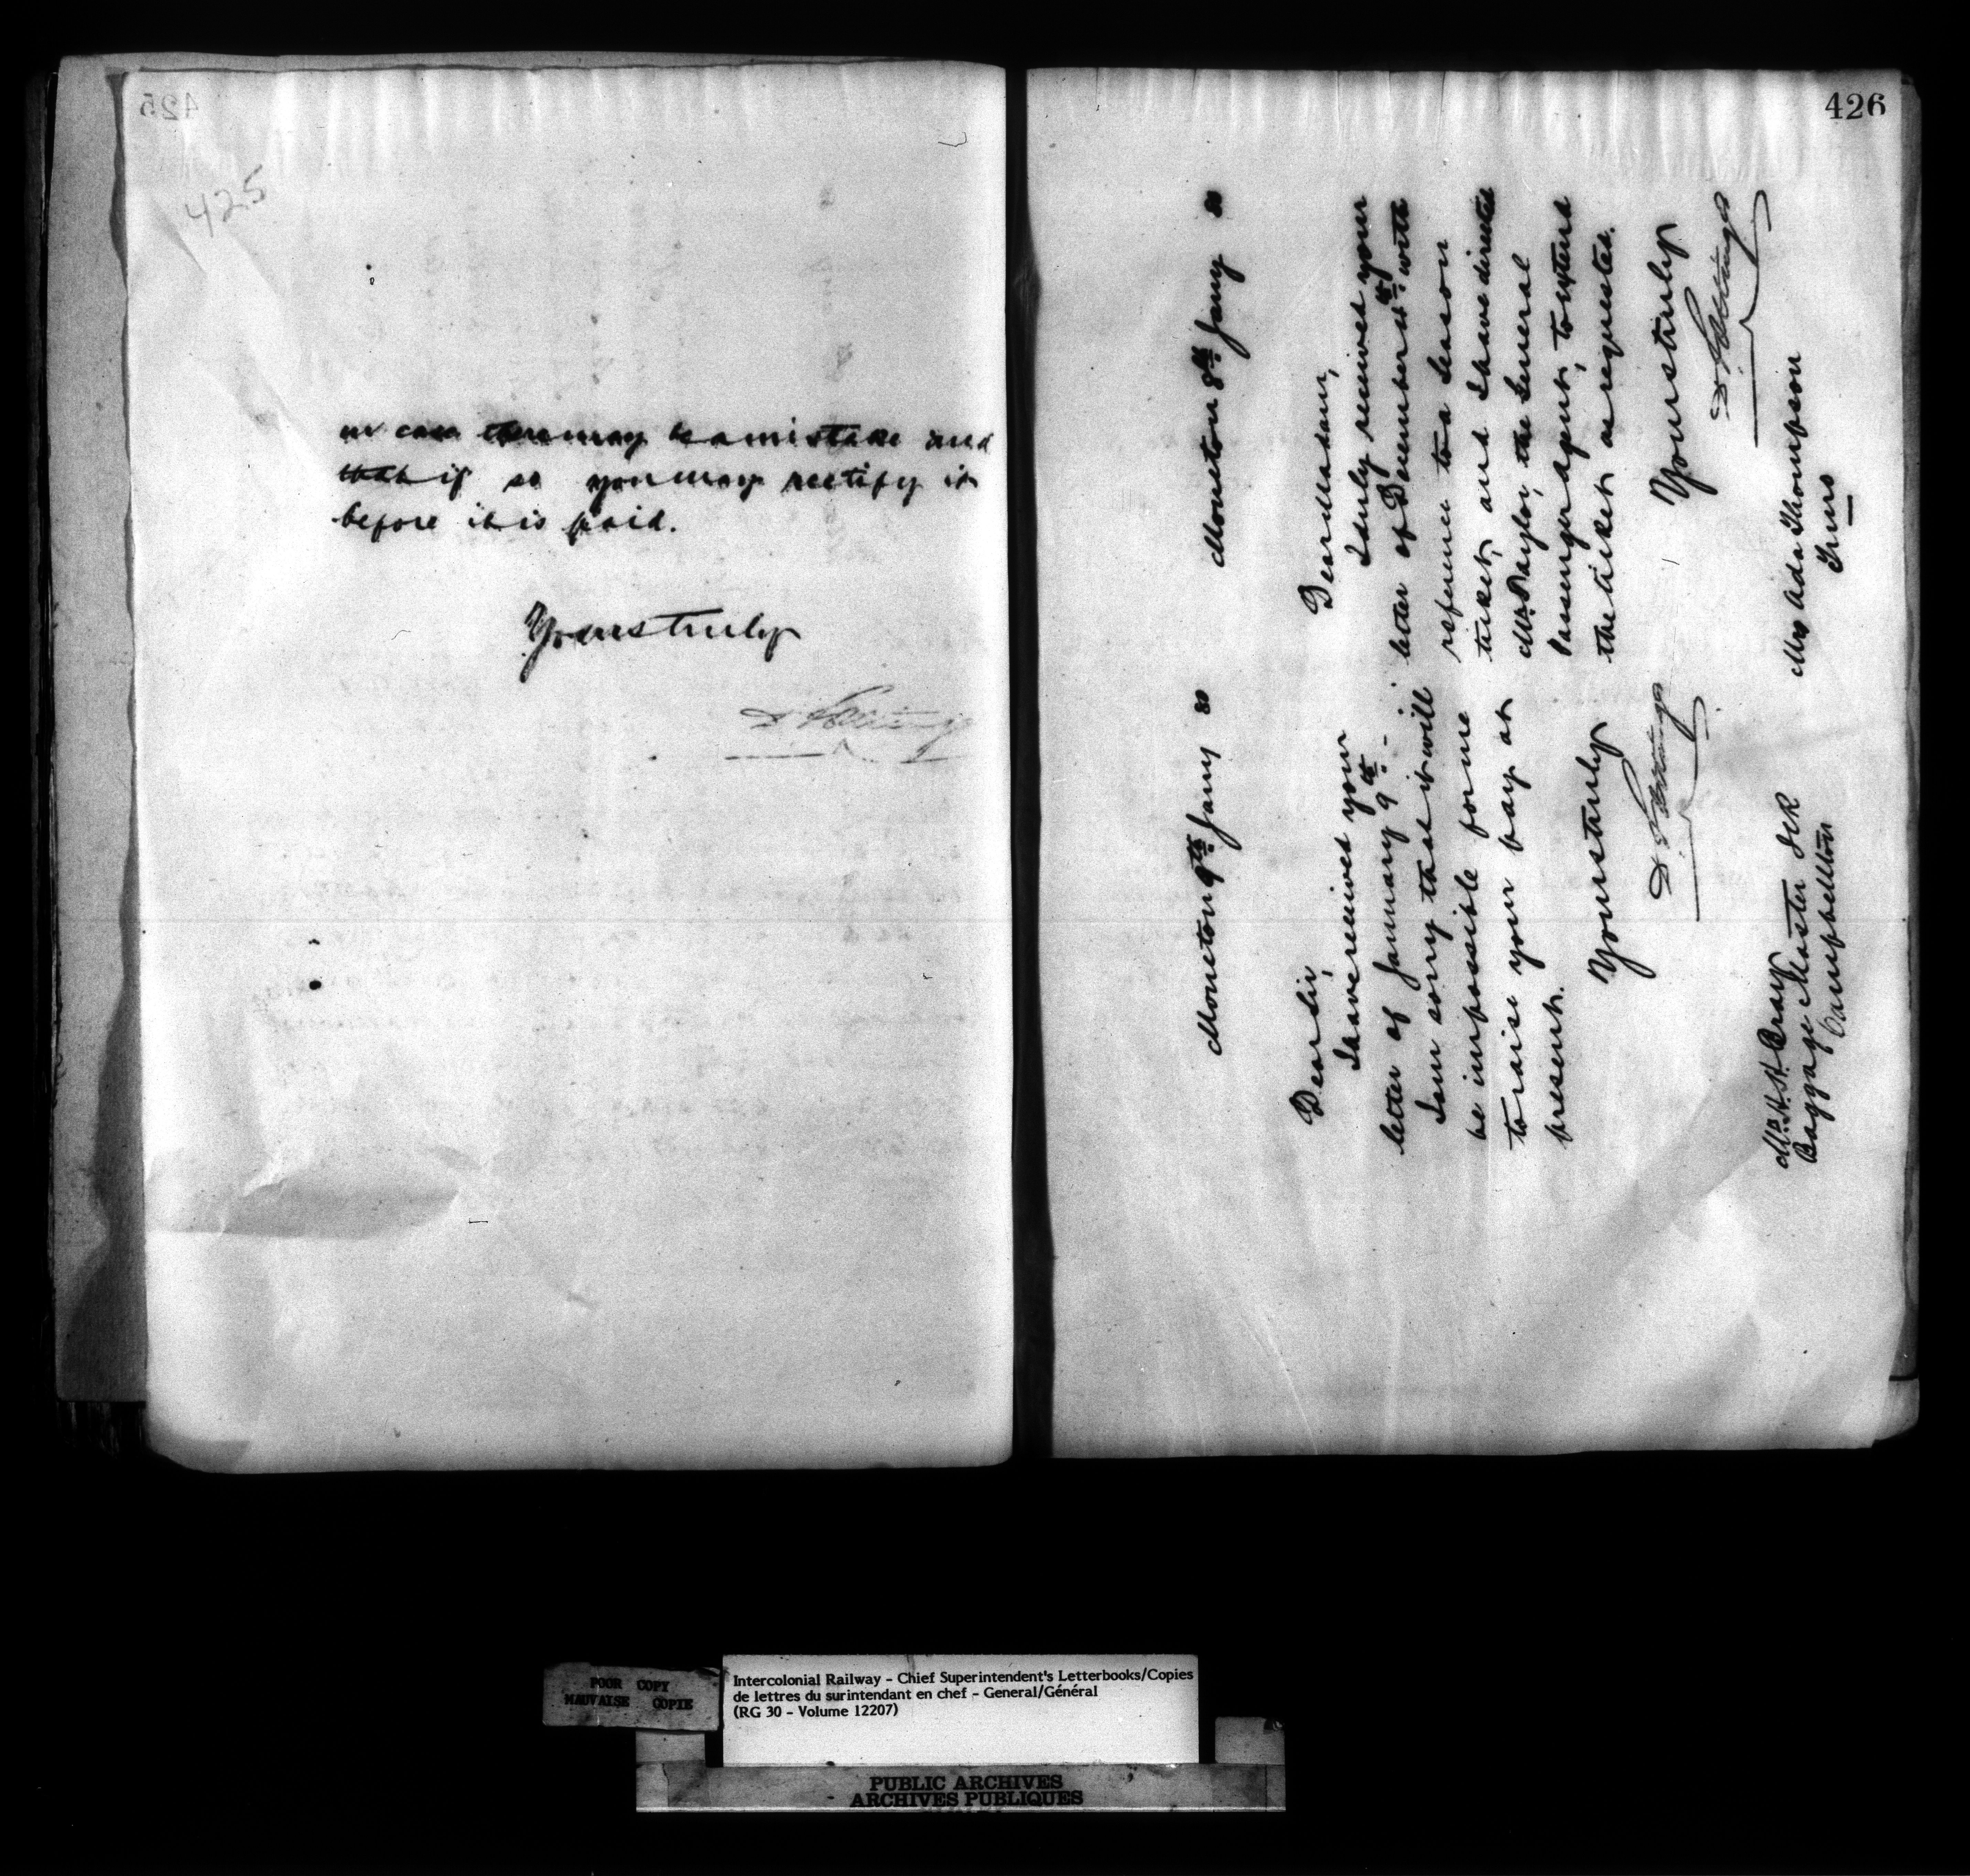 425
425
in case there may be a mistake and
that if so you may rectify it
before it is paid.
Yours truly
D Pottinger
426
Moncton 9th Jany 80
Dear Sir,
I have received your
letter of January 9th.
I am sorry that it will
be impossible for me
to raise your pay at
present.
Yours truly
D. Pottinger
Mr. H. A. Bray
Baggage Master ICR
Campbellton
Moncton 8th Jany 80
Dear Madam,
I duly received your
letter of December 11th with
reference to a season
ticket and I have directed
Mr. Taylor, the General
Passenger Agent, to extend
the ticket as requested.
Yours truly
D. Pottinger
Mrs Ada Thompson
Truro
POOR COPY
MAUVAISE COPIE
Intercolonial Railway - Chief Superintendent's Letterbooks/Copies
de lettres du surintendant en chef - General/Général
(RG 30 - Volume 12207)
PUBLIC ARCHIVES
ARCHIVES PUBLIQUES